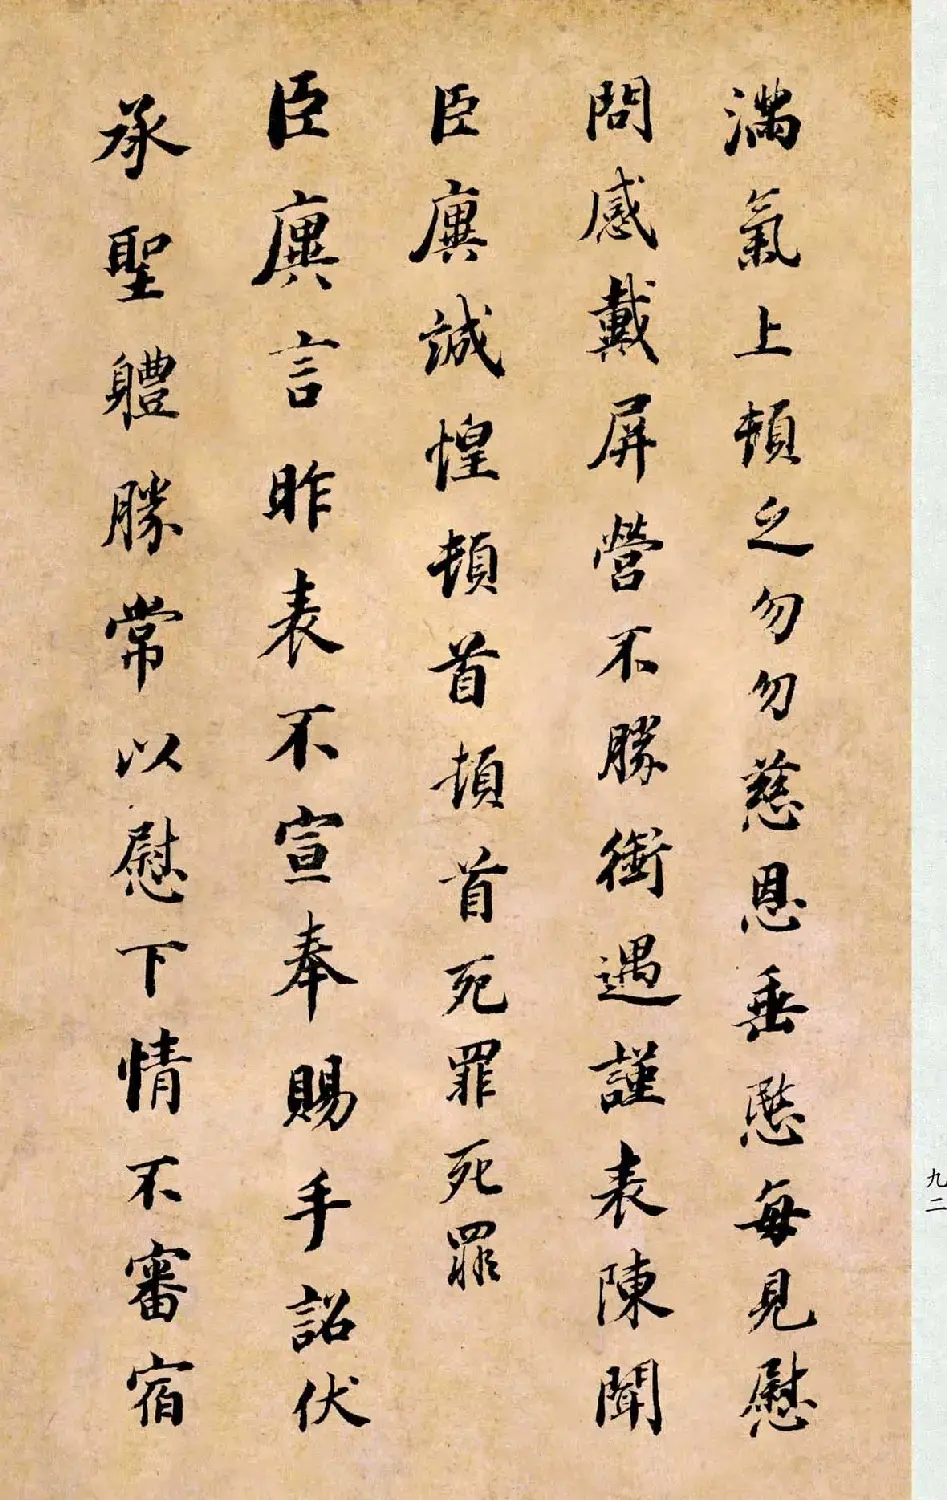 滿氣上頓乏勿勿慈恩垂愍每見慰
問感戴屏營不勝銜遇謹表陳聞
臣廙誠惶頓首頓首死罪死罪
臣廙言昨表不宣奉賜手詔伏
承聖體勝常以慰下情不審宿
九二